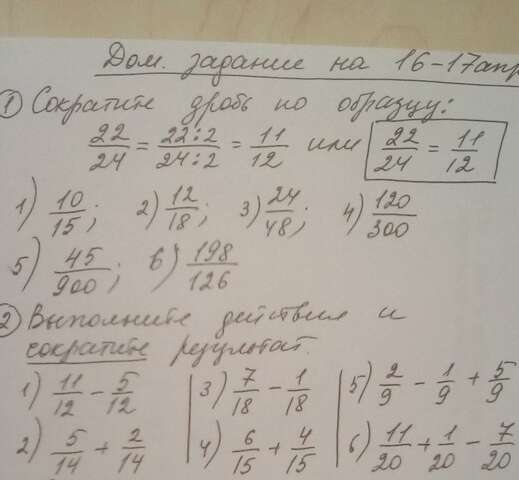 Дом. задание на 16-17апр
① Сократите дробь по образцу:
22/24 = 22:2/24:2 = 11/12 или 22/24 = 11/12
1) 10/15; 2) 12/18; 3) 24/48; 4) 120/300
5) 45/900; 6) 198/126
② Выполните действия и
сократите результат.
1) 11/12 - 5/12 3) 7/18 - 1/18 5) 2/9 - 1/9 + 5/9
2) 5/14 + 2/14 4) 6/15 + 4/15 6) 11/20 + 1/20 - 7/20